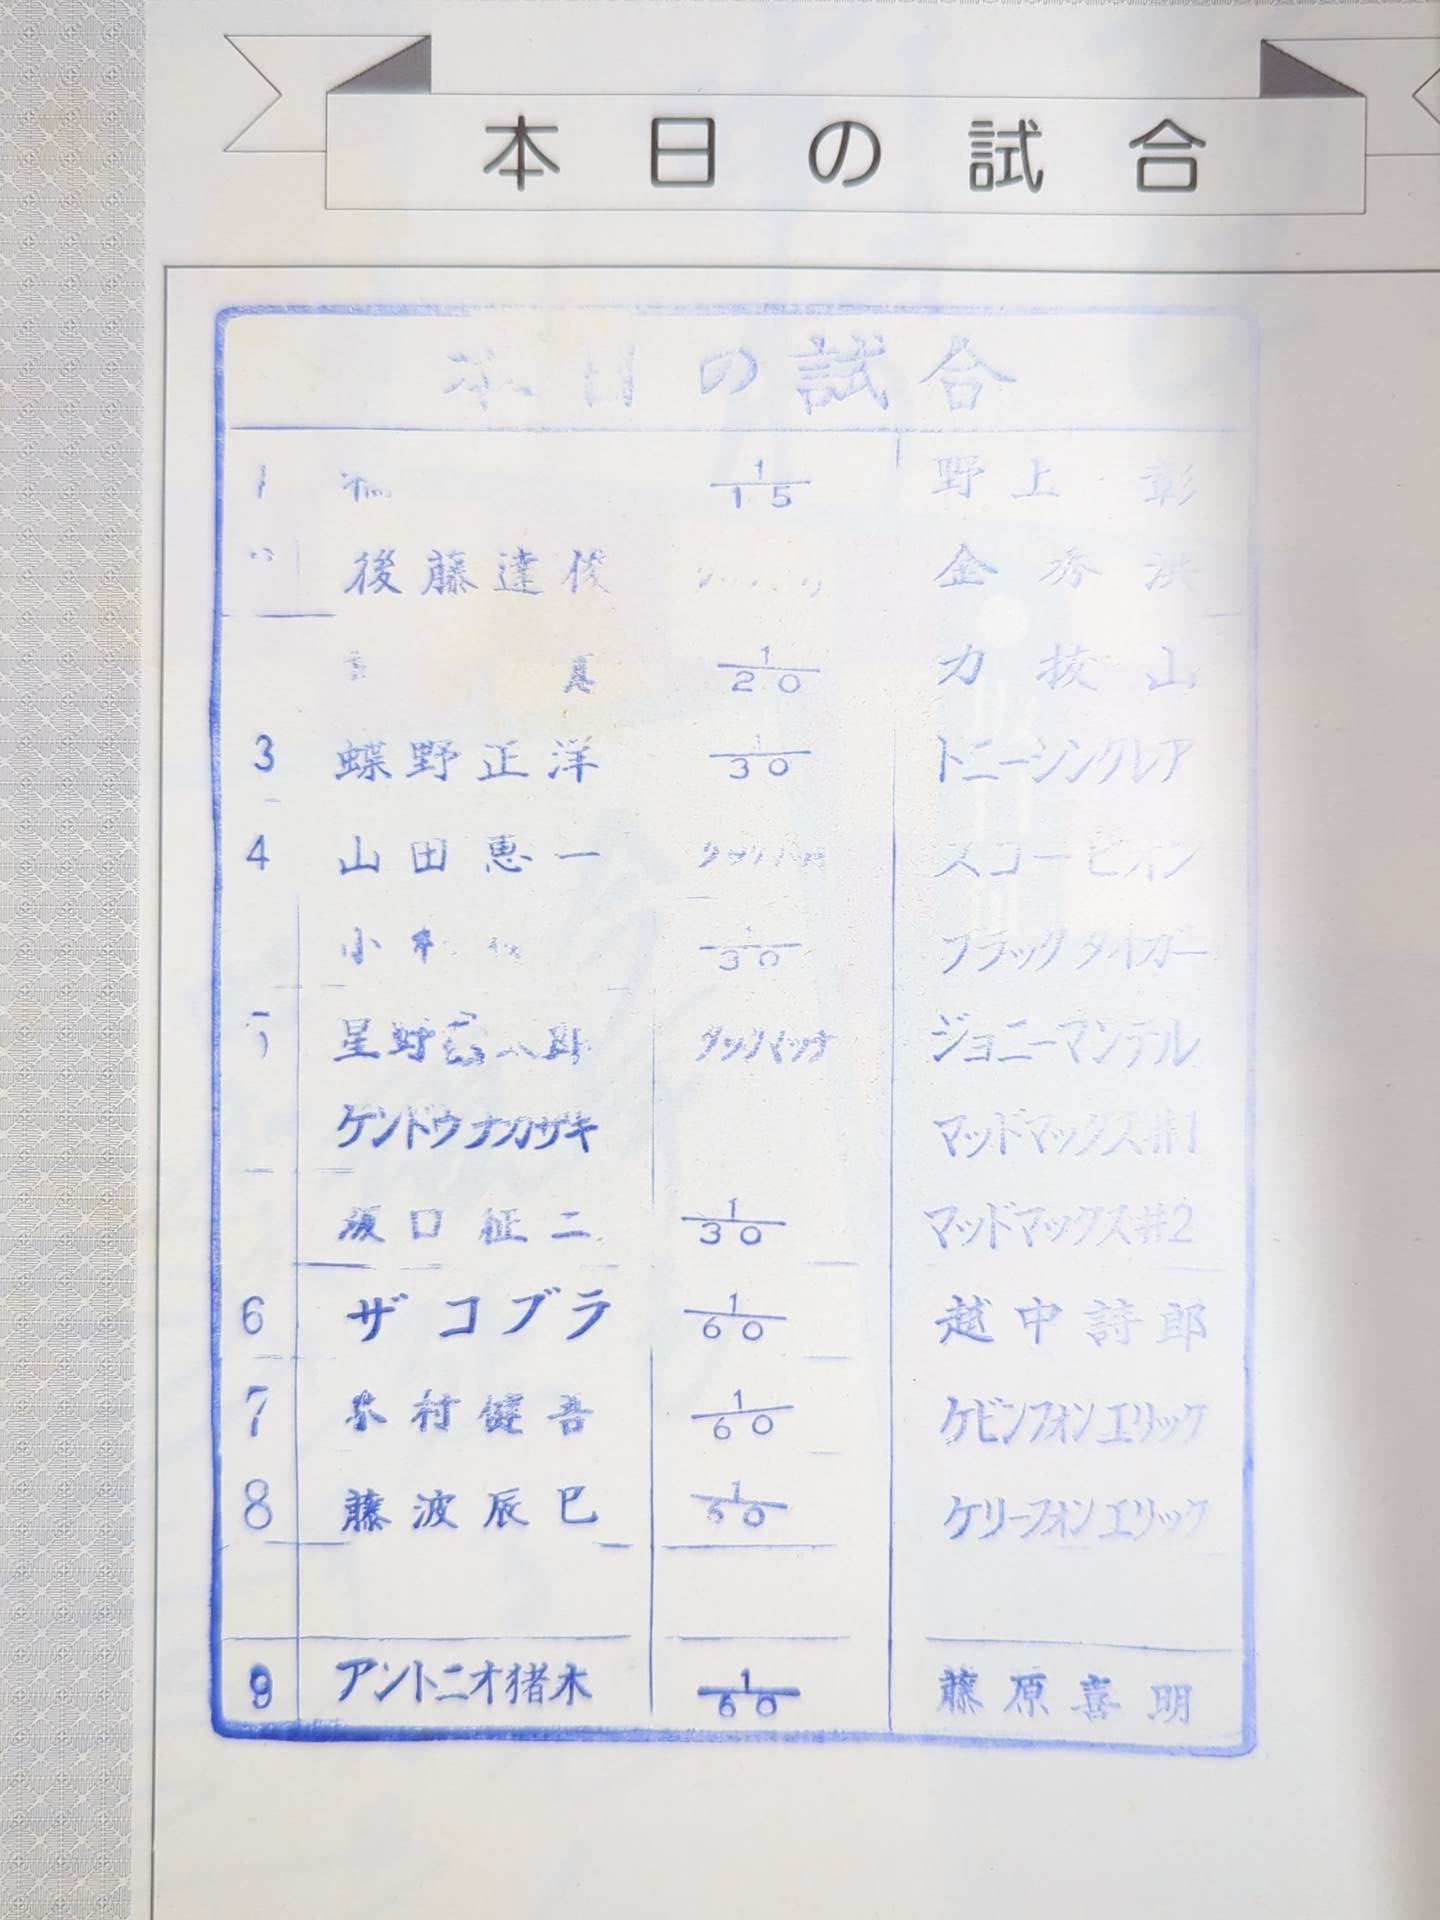 本日の試合
本日の試合
1 1/15 野上 彰
後藤達俊 金秀洪
1/20 力抜山
3 蝶野正洋 1/30 トニーシンクレア
4 山田恵一 タッグマッチ スコーピオン
小 1/30 ブラックタイガー
星野勘太郎 タッグマッチ ジョニーマンテル
ケンドウナガサキ マッドマックス#1
坂口征二 1/30 マッドマックス#2
6 ザコブラ 1/60 越中詩郎
7 木村健吾 1/60 ケビンフォンエリック
8 藤波辰巳 1/60 ケリーフォンエリック
9 アントニオ猪木 1/60 藤原喜明